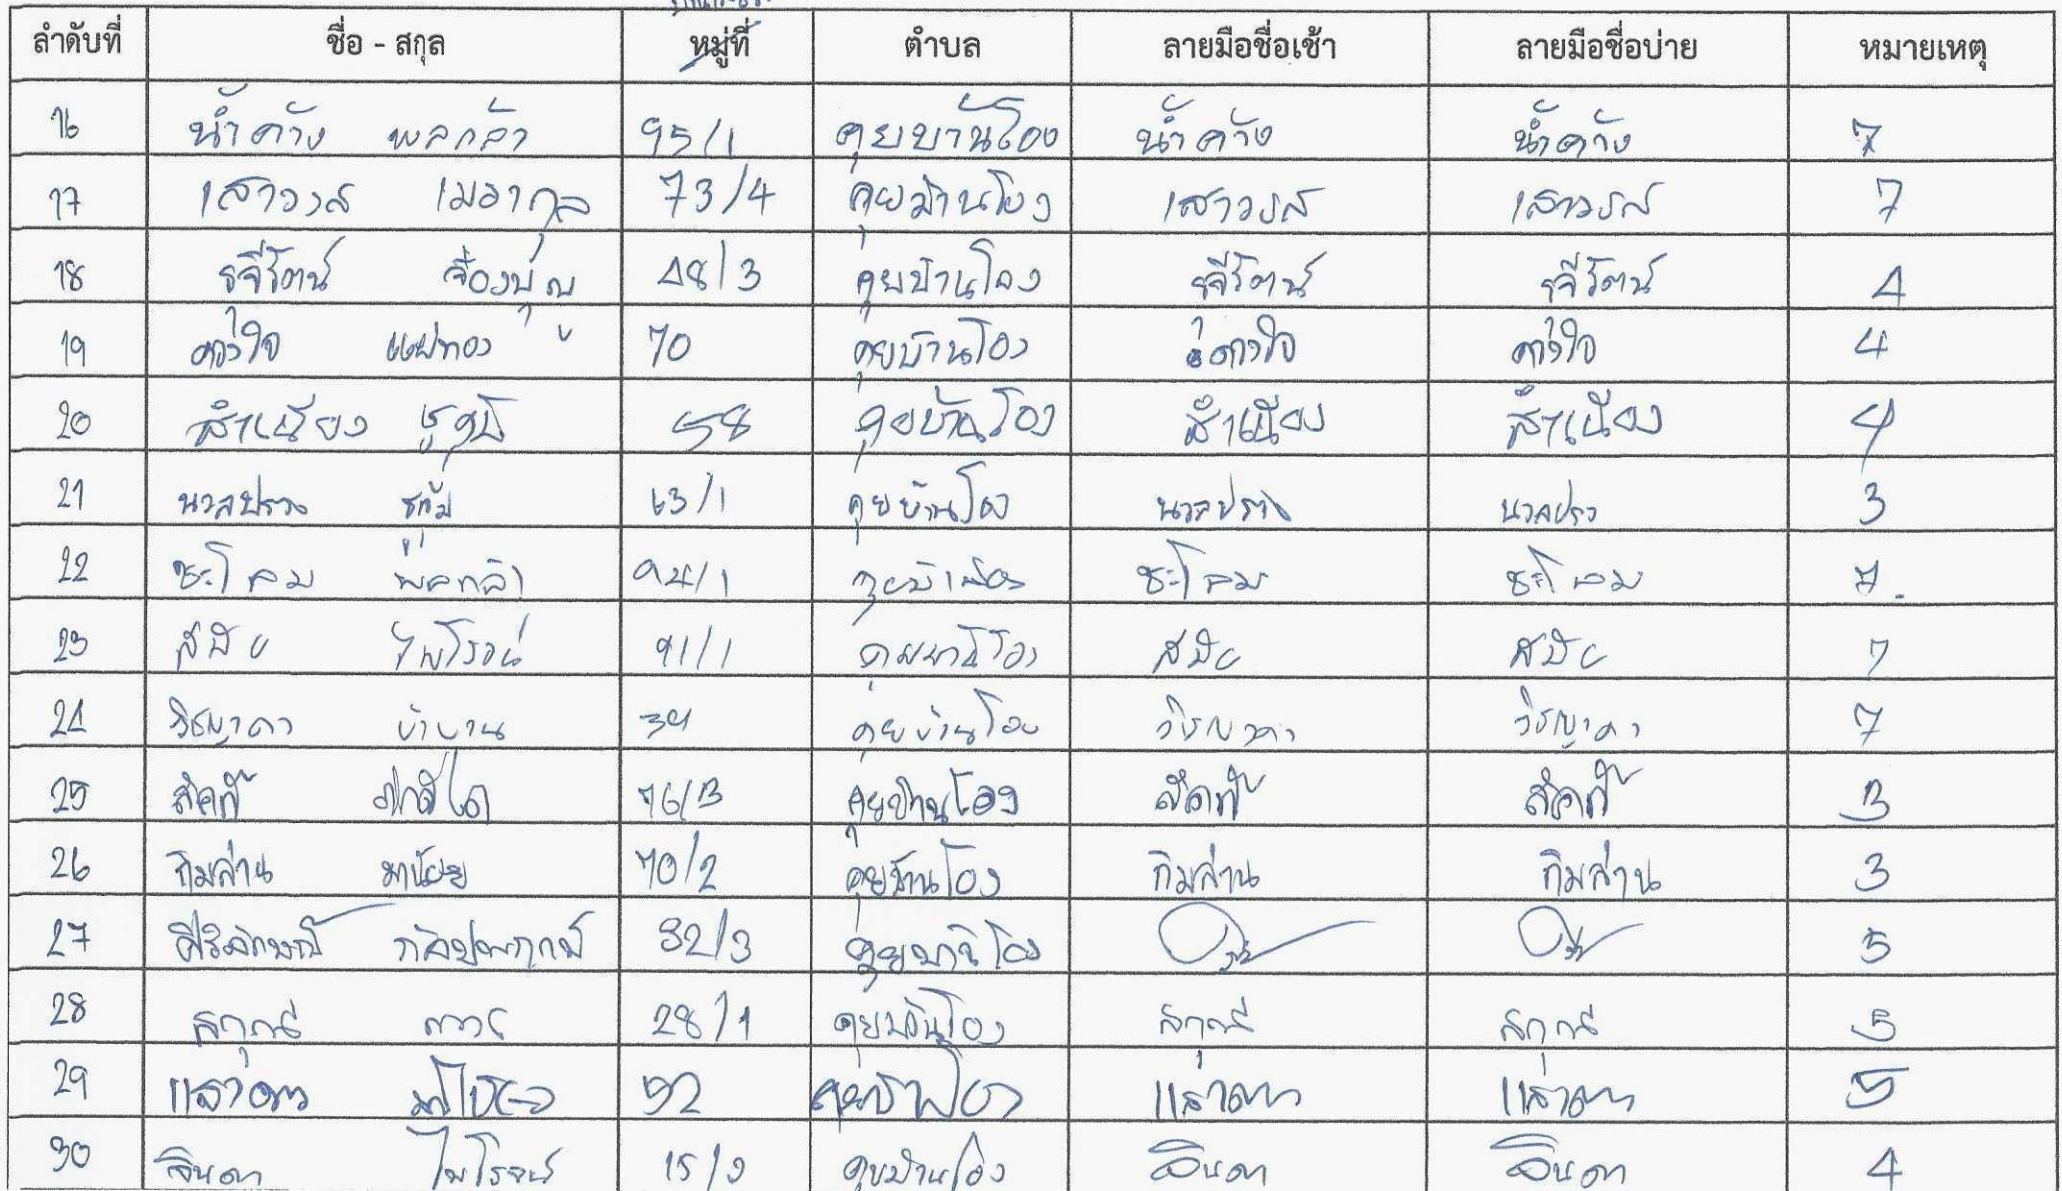 ลำดับที่ ชื่อ - สกุล หมู่ที่ ตำบล ลายมือชื่อเช้า ลายมือชื่อบ่าย หมายเหตุ
16 น้ำค้าง พลกล้า 95/1 คุยบ้านโอง น้ำค้าง น้ำค้าง 7
17 เสาวรส เมฆากุล 73/4 คุยบ้านโอง เสาวรส เสาวรส 7
18 รุจีรัตน์ 48/3 คุยบ้านโอง รุจีรัตน์ รุจีรัตน์ 4
19 ดวงใจ แผ่ทอง 70 คุยบ้านโอง ดวงใจ ดวงใจ 4
20 สำเนียง 58 คุยบ้านโอง สำเนียง สำเนียง 4
21 นวลปราง 63/1 คุยบ้านโอง นวลปราง นวลปราง 3
22 ชะโลม พลกล้า 94/1 คุยบ้านโอง ชะโลม ชะโลม 7.
23 ไพโรจน์ 91/1 คุยบ้านโอง 7
24 วิชญาดา 34 คุยบ้านโอง วิชญาดา วิชญาดา 7
25 76/3 คุยบ้านโอง 3
26 กิมล่าน มาน้อย 70/2 คุยบ้านโอง กิมล่าน กิมล่าน 3
27 ศิริลักษณ์ กัลปพฤกษ์ 32/3 คุยบ้านโอง 5
28 สกุณี ถาวร 28/1 คุยบ้านโอง สกุณี สกุณี 5
29 แสงดาว 52 คุยบ้านโอง แสงดาว แสงดาว 5
30 จินดา ไพโรจน์ 15/3 คุยบ้านโอง จินดา จินดา 4